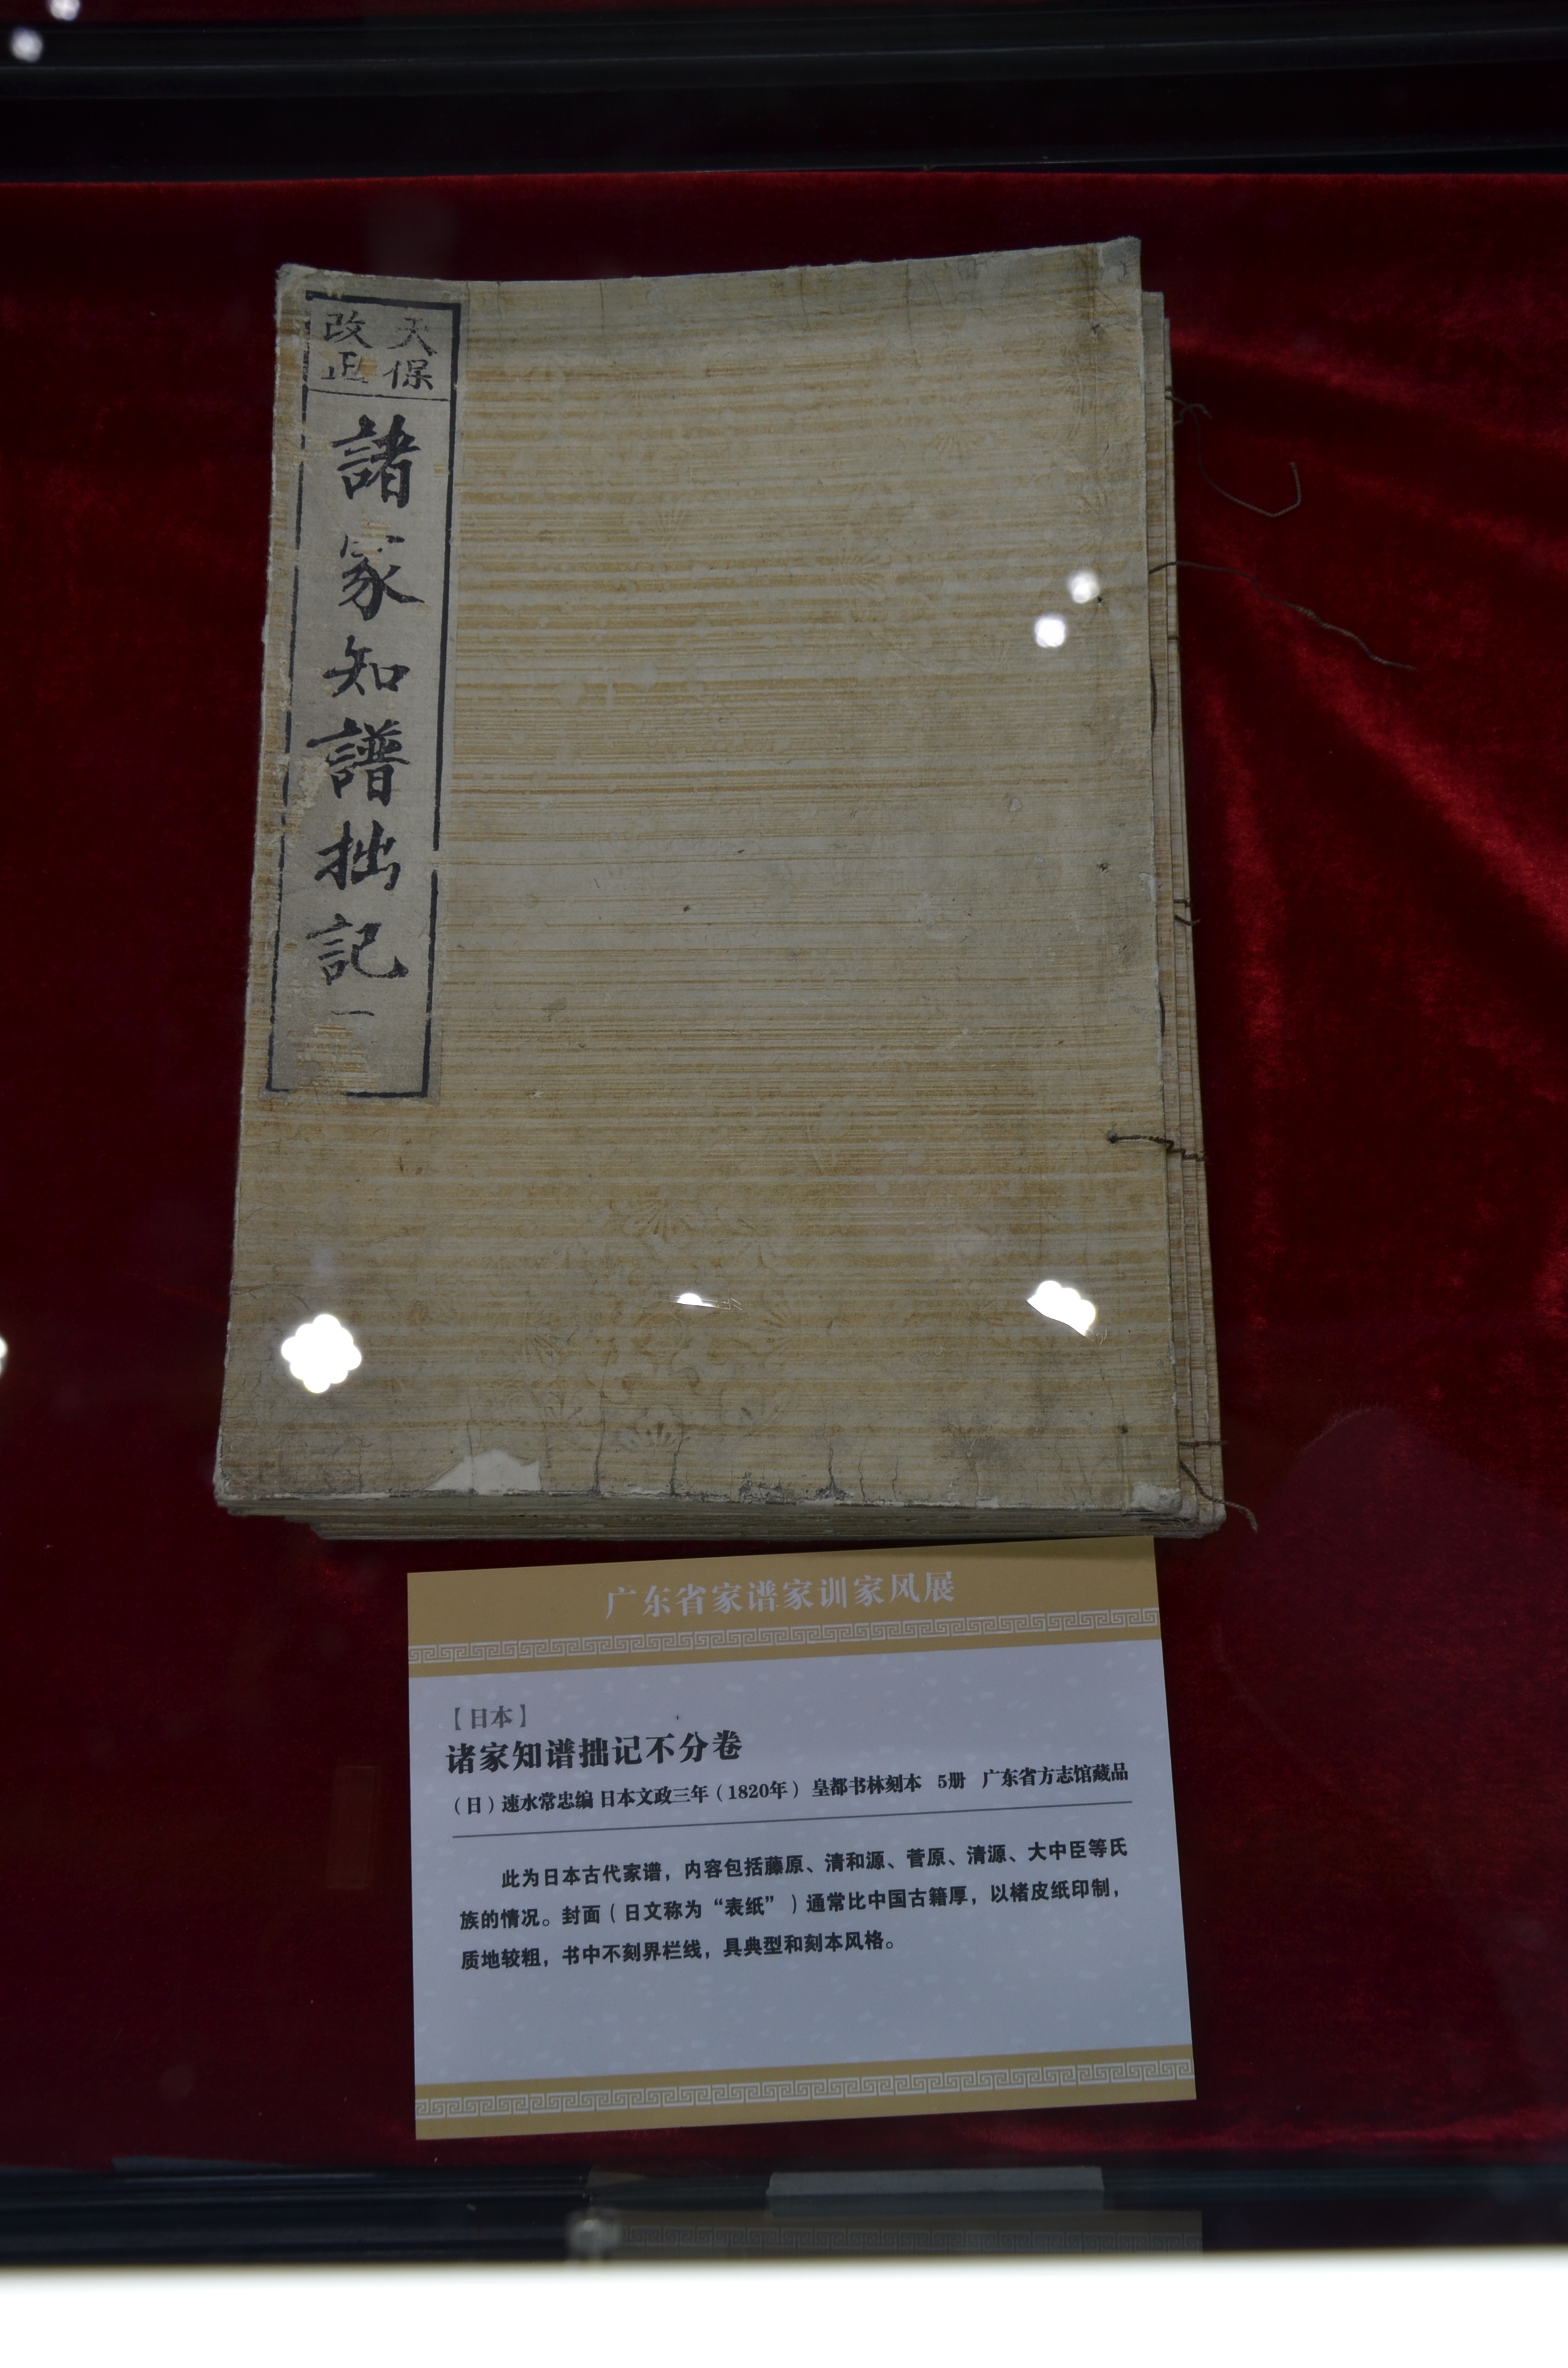 天保
改正
諸家知譜拙記 一
广东省家谱家训家风展
【日本】
诸家知谱拙记不分卷
（日）速水常忠编 日本文政三年（1820年） 皇都书林刻本 5册 广东省方志馆藏品
此为日本古代家谱，内容包括藤原、清和源、菅原、清源、大中臣等氏
族的情况。封面（日文称为“表纸”）通常比中国古籍厚，以楮皮纸印制，
质地较粗，书中不刻界栏线，具典型和刻本风格。